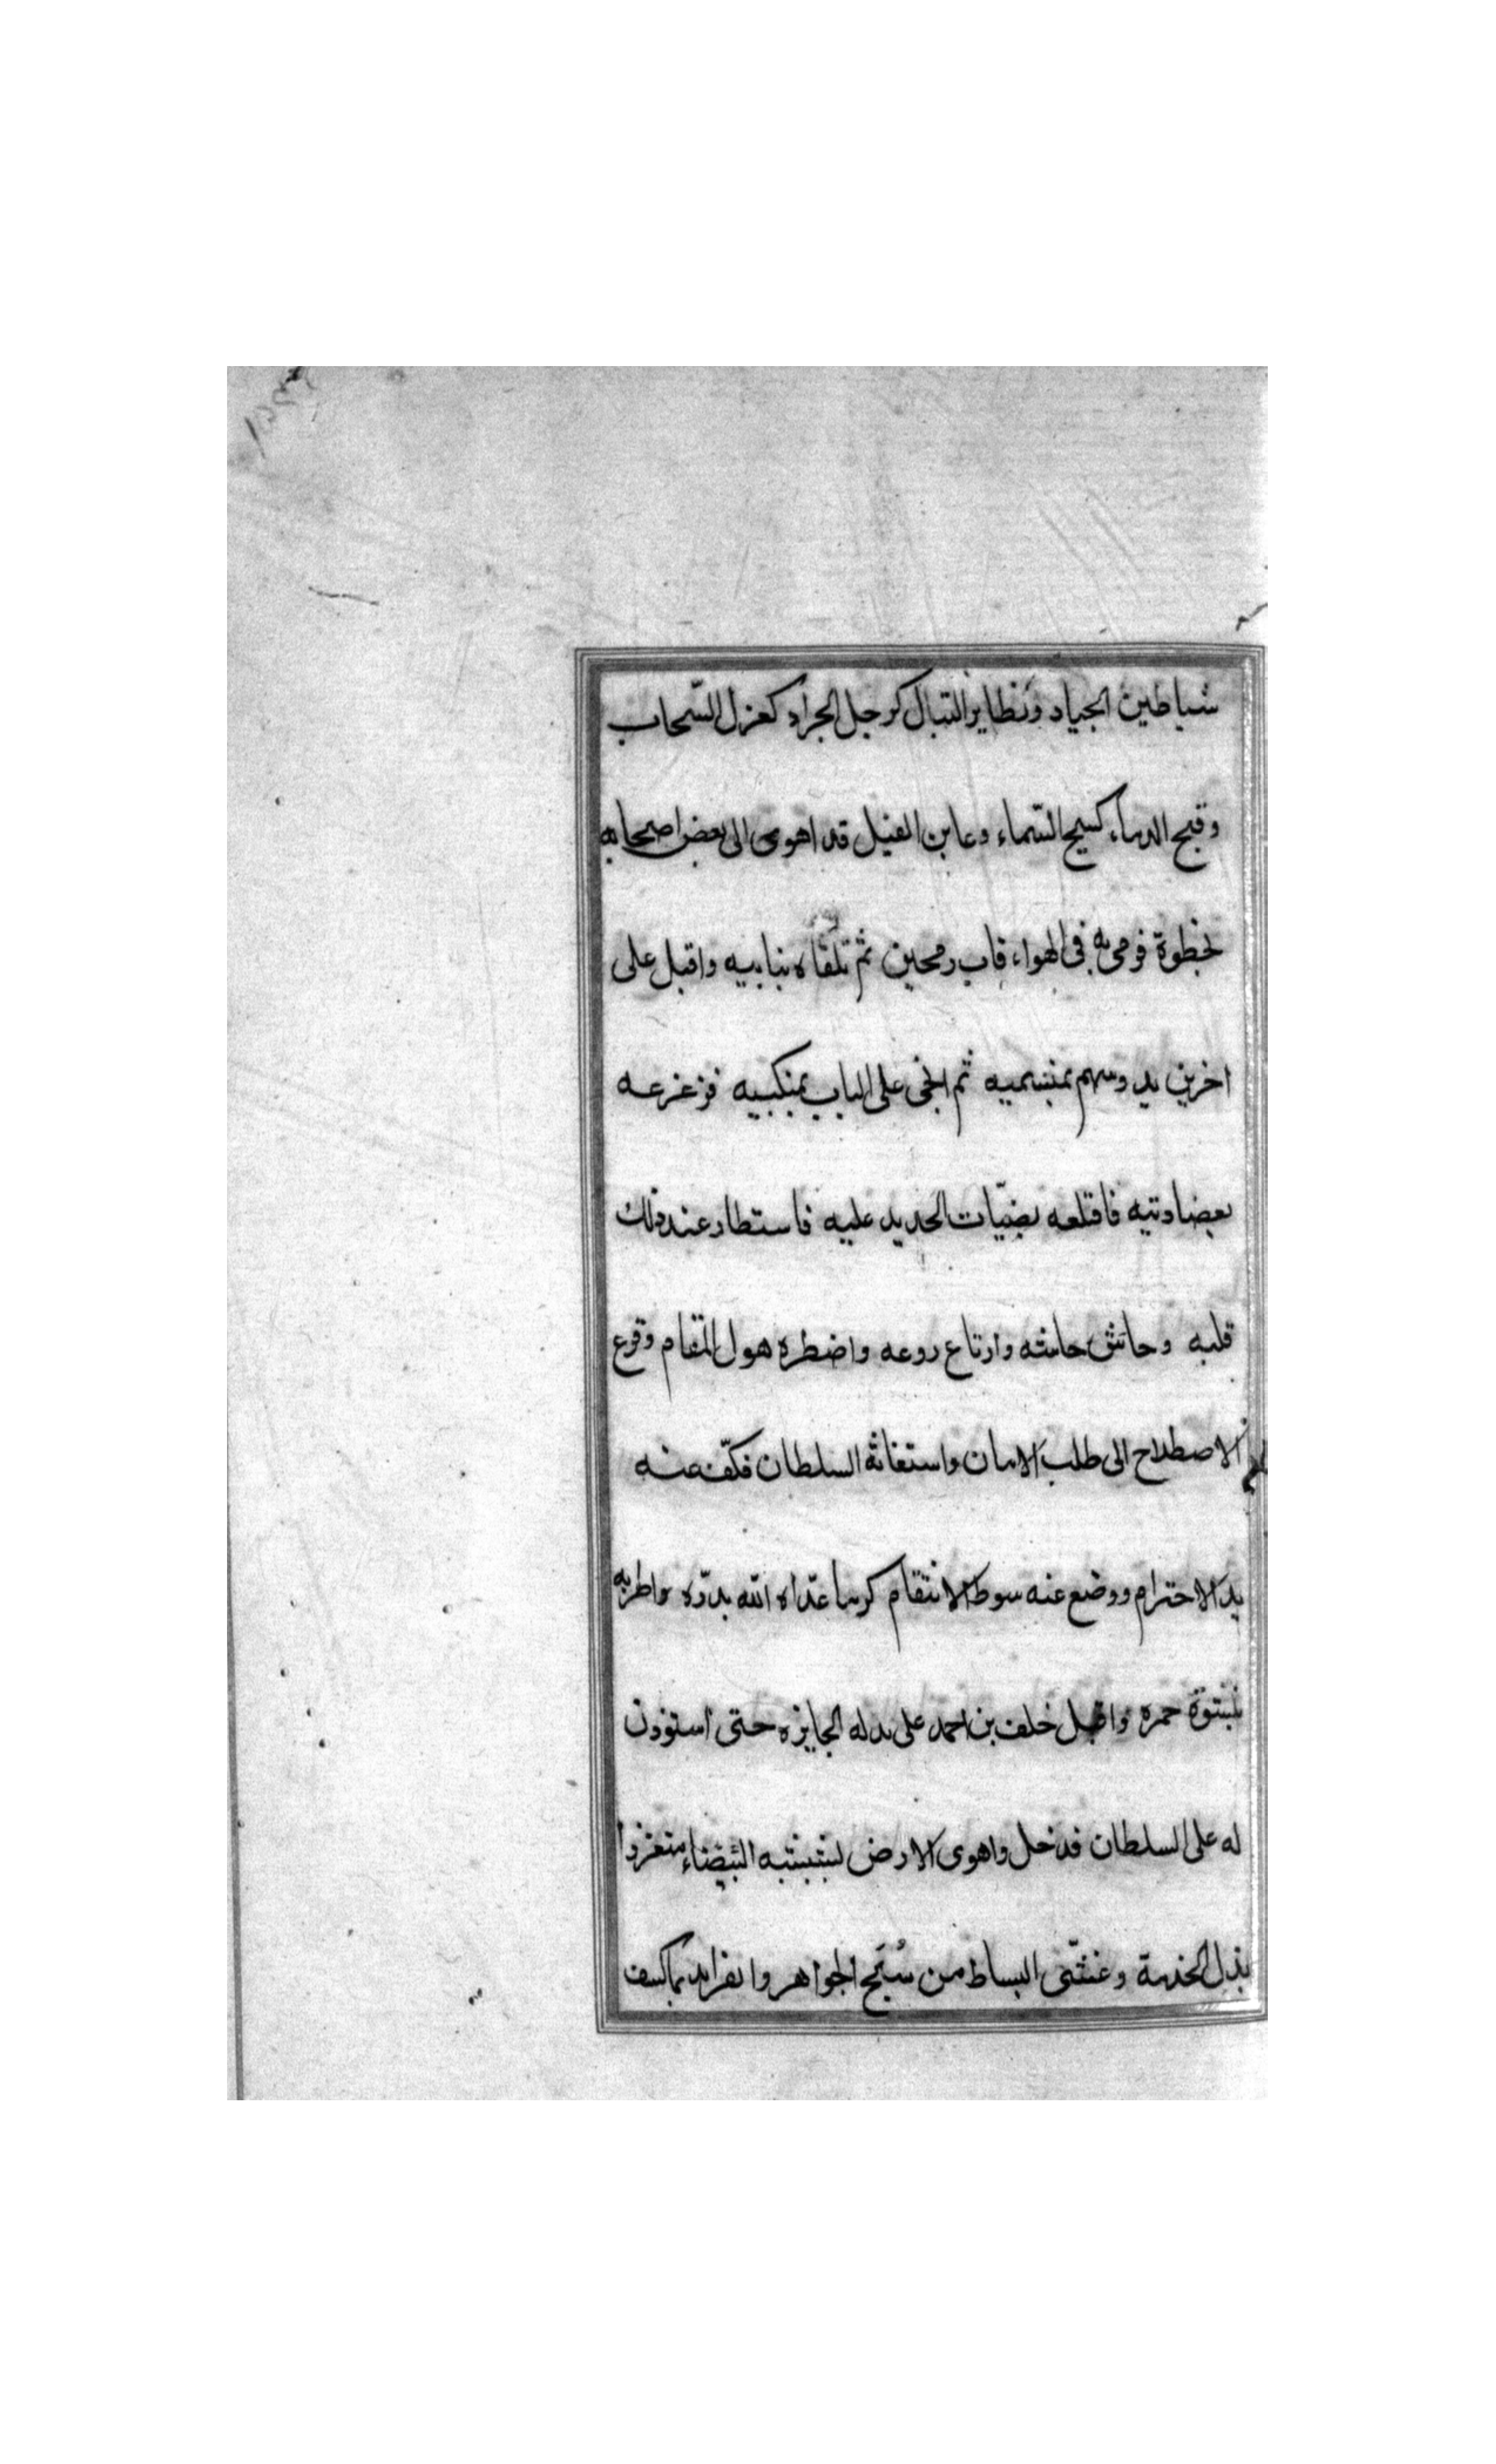 شياطين الجياد وتطاير النبال كرجل الجراد كعزل السّحاب
وقبح الدماء كسيح السّماء وعاين الفيل قد اهوى الى بعض اصحابه
بخطوة فرمى به فى الهواء قاب رمحين ثم تلقاه بنابيه واقبل على
اخرين يدوسهم بمنسميه ثم انحى على الباب بمنكبيه فزعزعه
بعضادتيه فاقتلعه بضبّات الحديد عليه فاستطار عند ذلك
قلبه وجاش جاشه وارتاع روعه واضطره هول المقام وقرع
الاصطلاح الى طلب الامان واستغاثة السلطان فكفّ عنه
يد الاحترام ووضع عنه سوط الانتقام كرما غذاه الله بدرّه واطربه
بنشوة خمره واقبل خلف بن احمد على بدله الجايزه حتى استؤذن
له على السلطان فدخل واهوى الارض لشيبته البيضاء متعززا
بذل الخدمة وغشّى البساط من سُبَح الجواهر والفرايد بما كسف